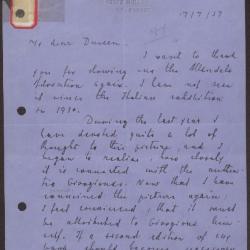 17/7/37
My dear Duveen,
I want to thank
you for showing me the Allendale
Adoration again. I have not seen
it since the Italian exhibition
in 1930.
During the last year I
have devoted quite a lot of
thought to this picture, and I
began to realise, how closely
it is connected with the authen-
tic Giorgiones. Now that I have
examined the picture again,
I feel convinced, that it must
be attributed to Giorgione him-
self. If a second edition of my
book should become necessary